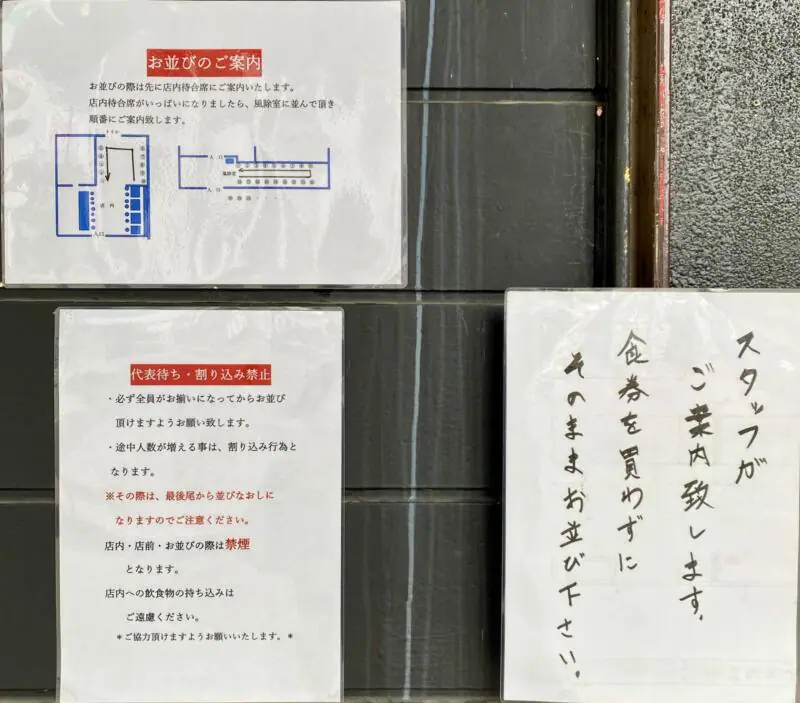 お並びのご案内
お並びの際は先に店内待合席にご案内いたします。
店内待合席がいっぱいになりましたら、風除室に並んで頂き
順番にご案内致します。
トイレ
店内
入口
入口
風除室
入口
代表待ち・割り込み禁止
・必ず全員がお揃いになってからお並び
頂けますようお願い致します。
・途中人数が増える事は、割り込み行為と
なります。
※その際は、最後尾から並びなおしに
なりますのでご注意ください。
店内・店前・お並びの際は禁煙
となります。
店内への飲食物の持ち込みは
ご遠慮ください。
*ご協力頂けますようお願いいたします。*
スタッフが
ご案内致します。
食券を買わずに
そのままお並び下さい。